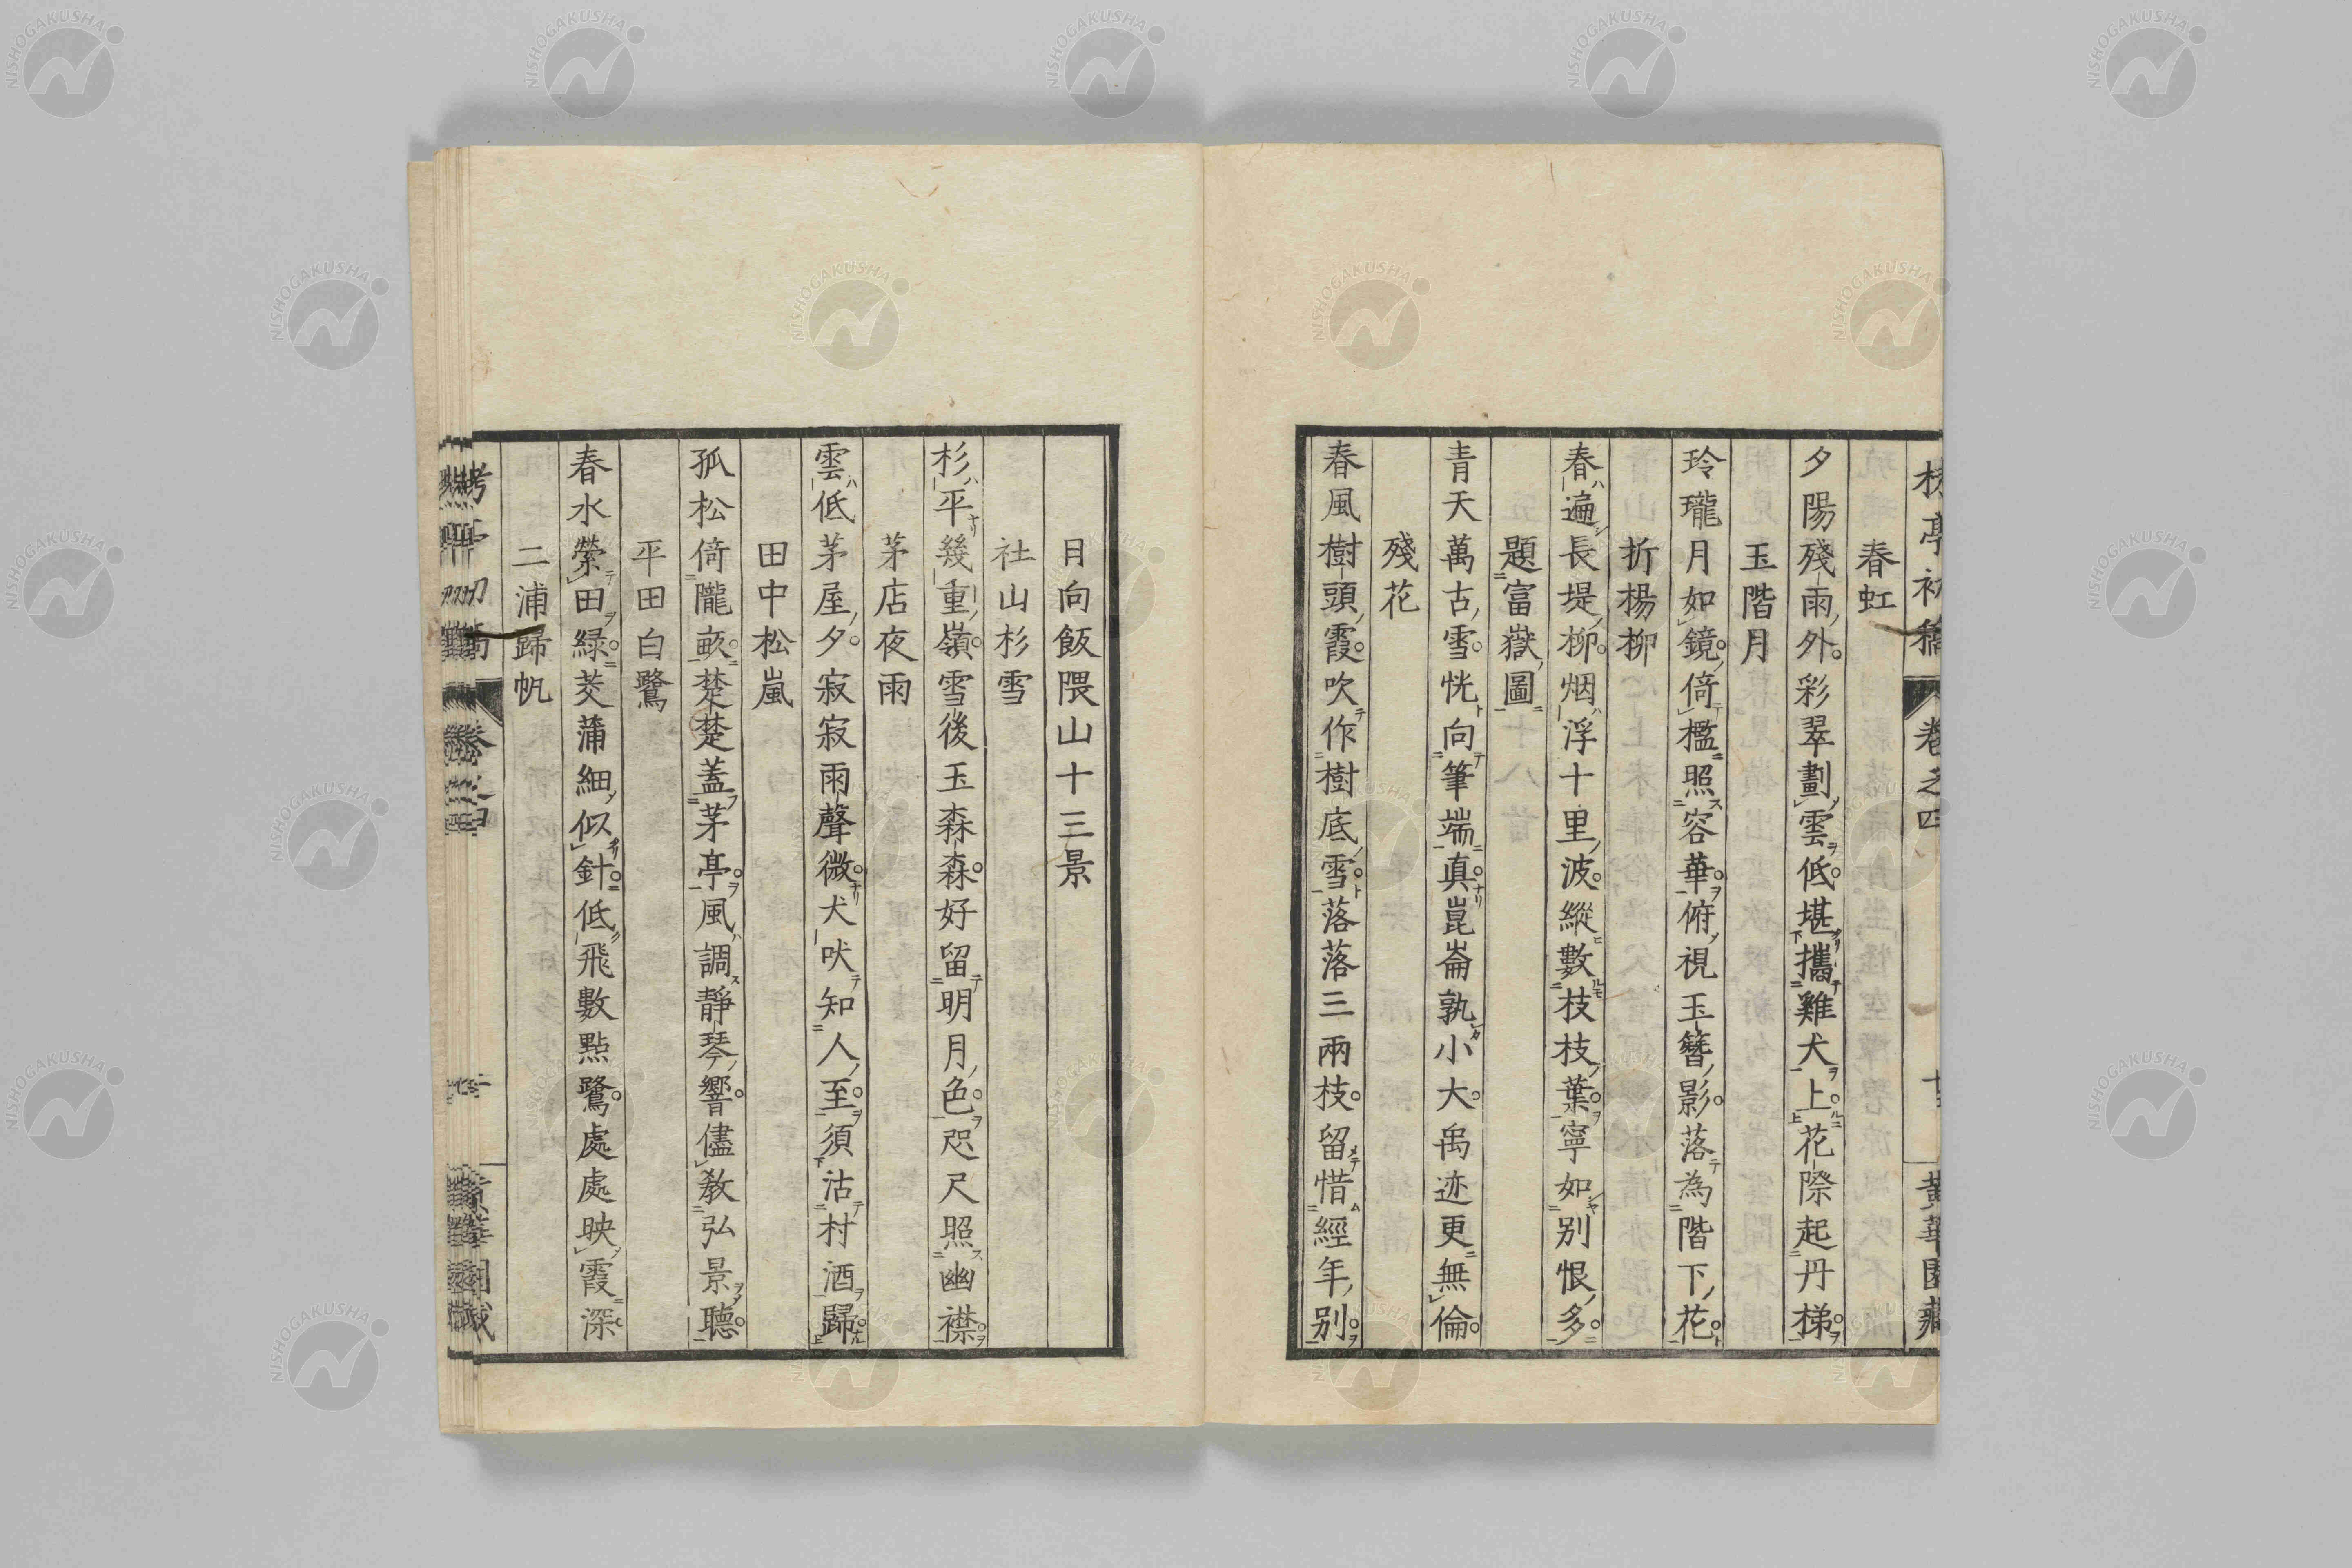 春虹
夕陽殘雨外彩翠劃雲低堪攜雞犬上花際起丹梯
玉階月
玲瓏月如鏡倚檻照容華俯視玉簪影落為階下花
折楊柳
春遍長堤柳烟浮十里波縱數枝枝葉寧如別恨多
題富嶽圖
青天萬古雪恍向筆端真崑崙孰小大禹迹更無倫
殘花
春風樹頭霞吹作樹底雪落落三兩枝留惜經年別
日向飯隈山十三景
社山杉雪
杉平幾重嶺雪後玉森森好留明月色咫尺照幽襟
茅店夜雨
雲低茅屋夕寂寂雨聲微犬吠知人至須沽村酒歸
田中松嵐
孤松倚隴畝楚楚蓋茅亭風調靜琴響儘教弘景聽
平田白鷺
春水縈田綠茭蒲細似針低飛數點鷺處處映霞深
二浦歸帆
亭初稿 卷之四 黃華園藏
NISHOGAKUSHA